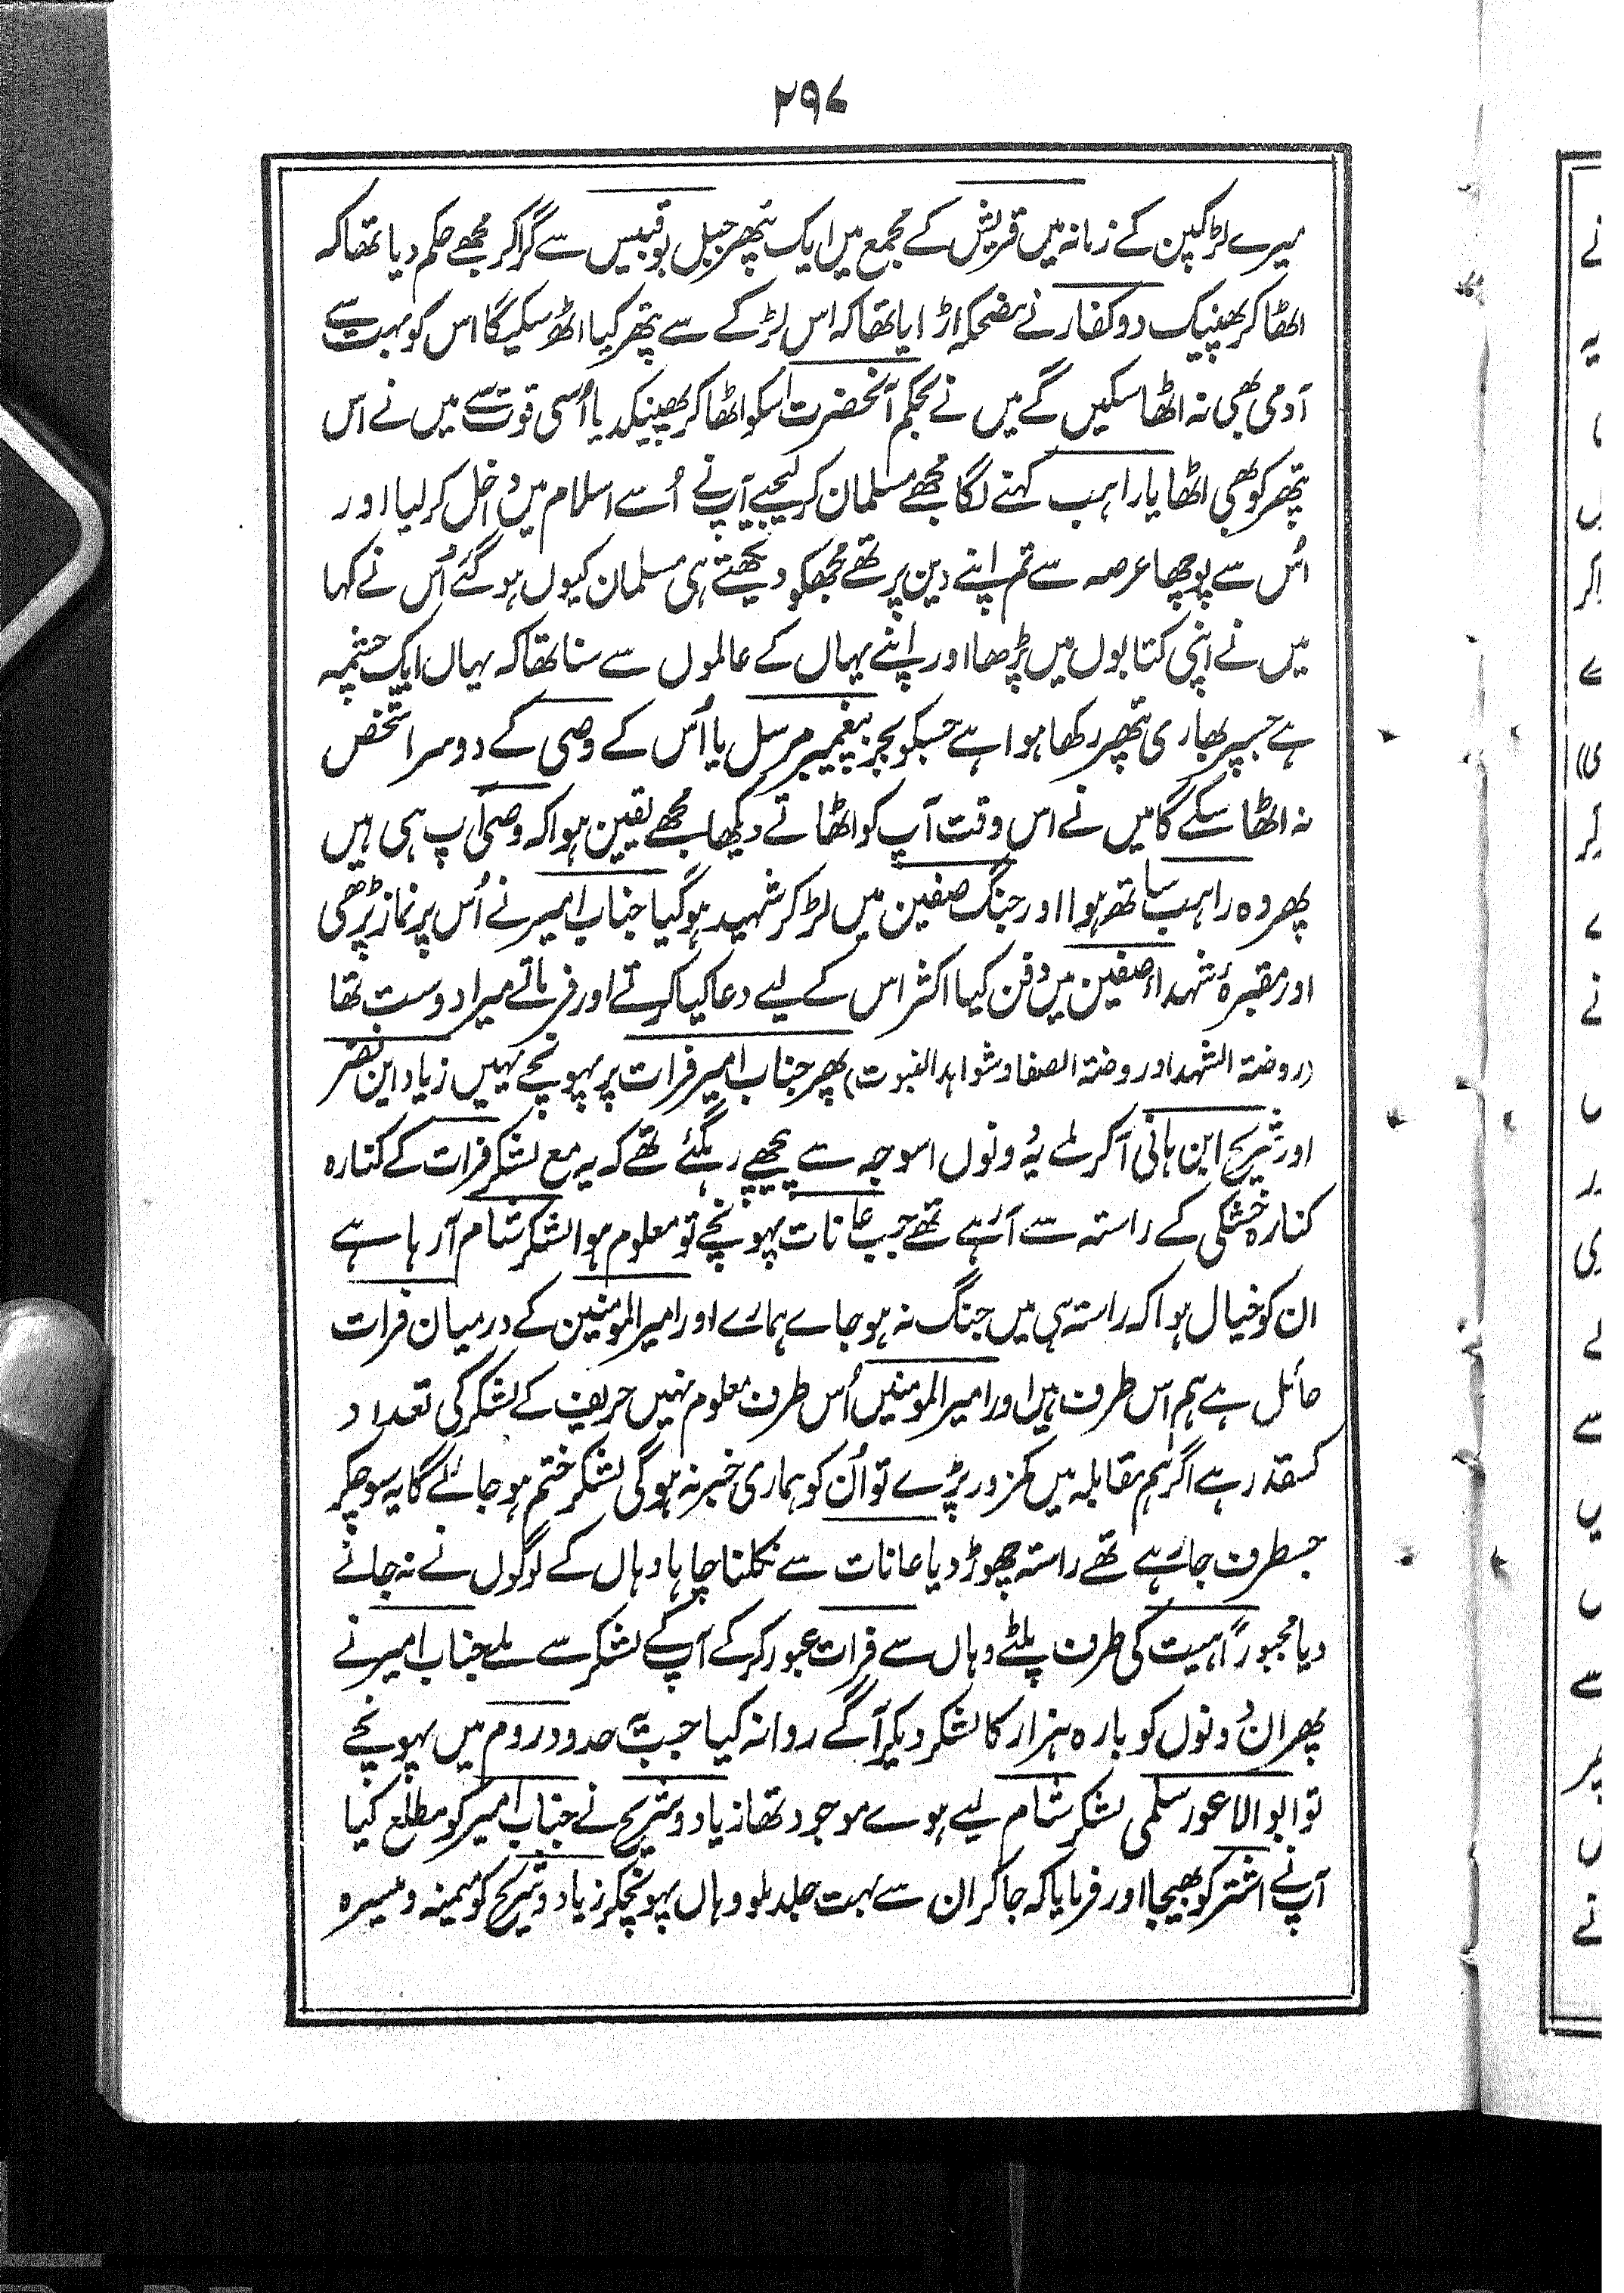 ۲۹۷
میرے لڑکپن کے زمانہ میں قریش کے مجمع میں ایک پتھر جبل بوقبیس سے گرا کر مجھے حکم دیا تھا کہ
اٹھا کر پھینک دو کفار نے مضحکہ اڑایا تھا کہ اس لڑکے سے پتھر کیا اٹھ سکیگا اس کو بہت سے
آدمی بھی نہ اٹھا سکیں گے میں نے بحکم آنحضرت اسکو اٹھا کر پھینکدیا اُسی قوت سے میں نے اس
پتھر کو بھی اٹھایا راہب کہنے لگا مجھے مسلمان کر لیجیے آپ نے اُسے اسلام میں داخل کر لیا اور
اُس سے پوچھا عرصہ سے تم اپنے دین پر تھے مجھکو دیکھتے ہی مسلمان کیوں ہو گئے اُس نے کہا
میں نے اپنی کتابوں میں پڑھا اور اپنے یہاں کے عالموں سے سنا تھا کہ یہاں ایک چشمہ
ہے جسپر بھاری پتھر رکھا ہوا ہے جسکو بجز پیغمبر مرسل یا اُس کے وصی کے دوسرا شخص
نہ اٹھا سکے گا میں نے اس وقت آپ کو اٹھاتے دیکھا مجھے یقین ہوا کہ وصی آپ ہی ہیں
پھر وہ راہب ساتھ ہوا اور جنگ صفین میں لڑ کر شہید ہو گیا جناب امیر نے اُس پر نماز پڑھی
اور مقبرۂ شہداء صفین میں دفن کیا اکثر اس کے لیے دعا کیا کرتے اور فرماتے میرا دوست تھا
(روضۃ الشہدا و روضۃ الصفا و شواہد النبوت) پھر جناب امیر فرات پر پہونچے یہیں زیاد ابن نضر
اور شریح ابن ہانی آکر ملے یہ دونوں اسوجہ سے پیچھے رہگئے تھے کہ یہ مع لشکر فرات کے کنارہ
کنارہ خشکی کے راستہ سے آرہے تھے جب عانات پہونچے تو معلوم ہوا لشکر شام آرہا ہے
ان کو خیال ہوا کہ راستہ ہی میں جنگ نہ ہو جاے ہمارے اور امیر المومنین کے درمیان فرات
حائل ہے ہم اس طرف ہیں اور امیر المومنیں اُس طرف معلوم نہیں حریف کے لشکر کی تعداد
کسقدر ہے اگر ہم مقابلہ میں کمزور پڑے تو اُن کو ہماری خبر نہ ہوگی لشکر ختم ہو جائے گا یہ سوچکر
جسطرف جارہے تھے راستہ چھوڑ دیا عانات سے نکلنا چاہا وہاں کے لوگوں نے نہ جانے
دیا مجبوراً ہیت کی طرف پلٹے وہاں سے فرات عبور کر کے آپ کے لشکر سے ملے جناب امیر نے
پھر ان دونوں کو بارہ ہزار کا لشکر دیکر آگے روانہ کیا جب یہ حدود روم میں پہونچے
تو ابوالاعور سلمی لشکر شام لیے ہوے موجود تھا زیاد و شریح نے جناب امیر کو مطلع کیا
آپ نے اشتر کو بھیجا اور فرمایا کہ جا کر ان سے بہت جلد ملو وہاں پہونچکر زیاد و شریح کو میمنہ و میسرہ